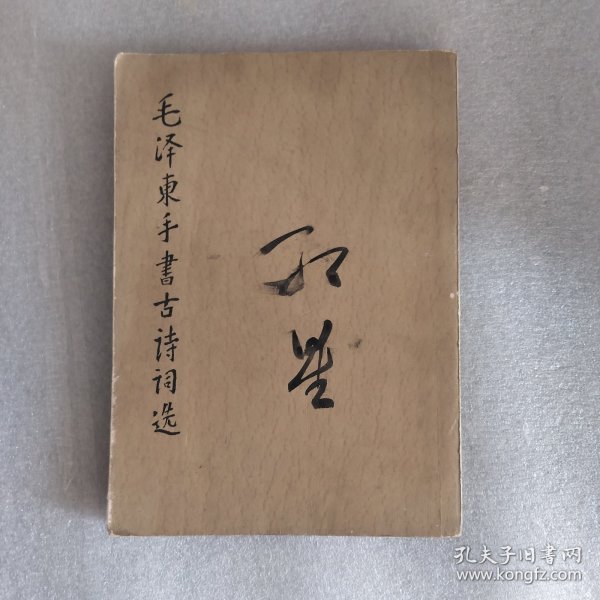 毛泽東手書古詩词选
孔夫子旧书网
www.kongfz.com